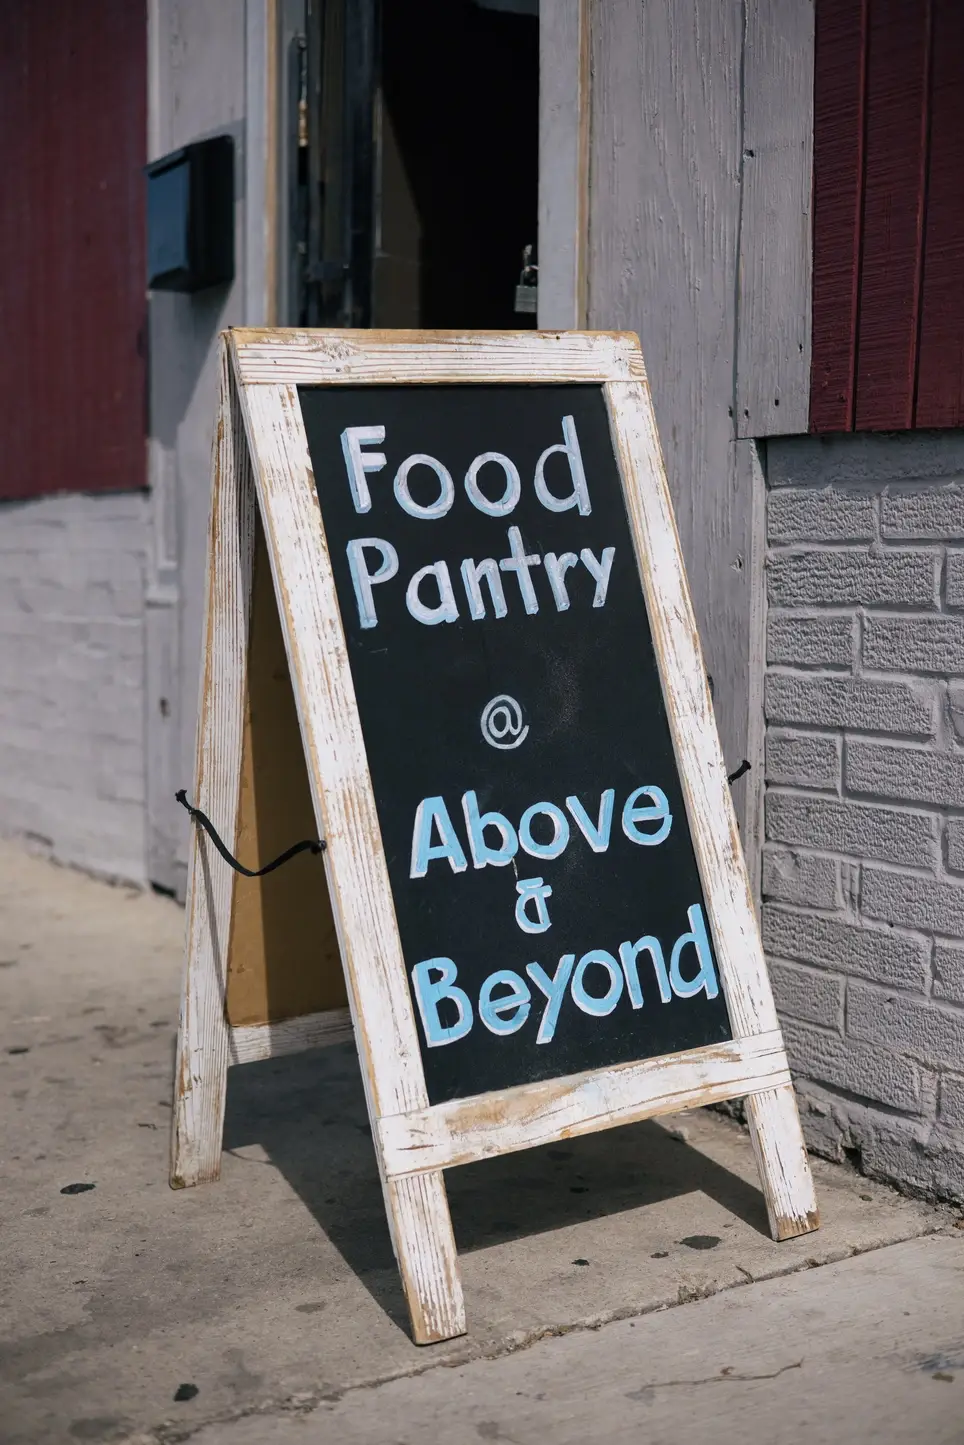 Food
Pantry
@
Above
&
Beyond